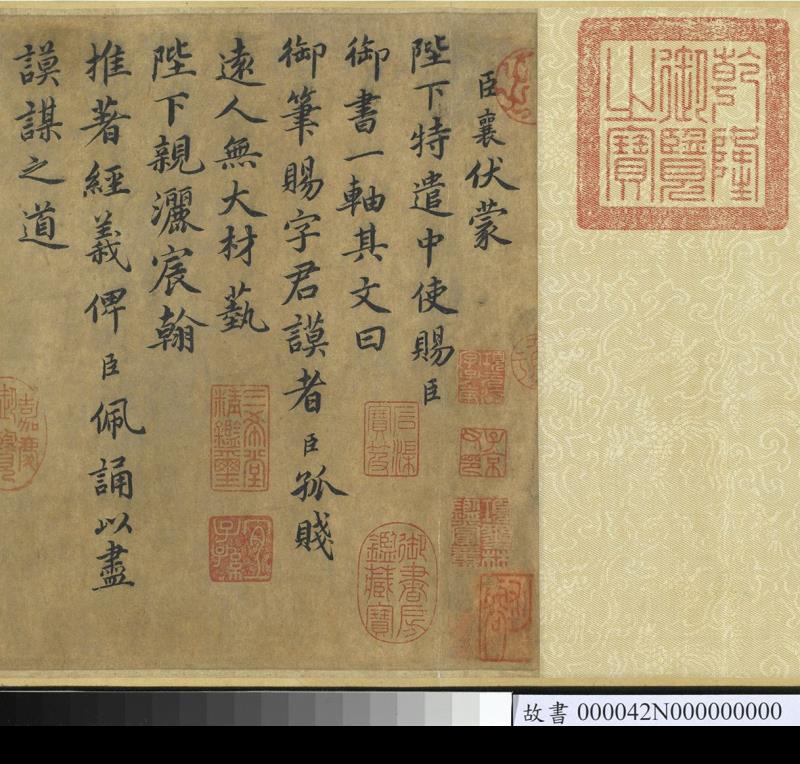 乾隆御覽之寶
臣襄伏蒙
陛下特遣中使賜臣
御書一軸其文曰
御筆賜字君謨者臣孤賤
遠人無大材藝
陛下親灑宸翰
推著經義俾臣佩誦以盡
謨謀之道
三希堂精鑑璽
宜子孫
御書房鑑藏寶
故書 000042N000000000